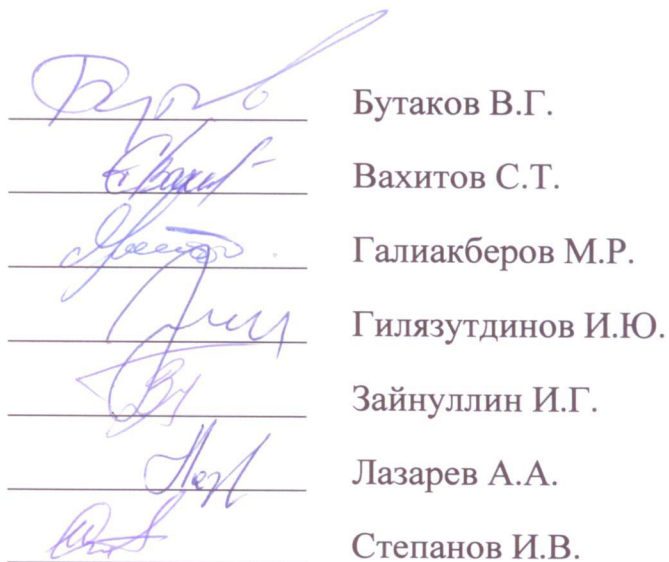 Бутаков В.Г.
Вахитов С.Т.
Галиакберов М.Р.
Гилязутдинов И.Ю.
Зайнуллин И.Г.
Лазарев А.А.
Степанов И.В.